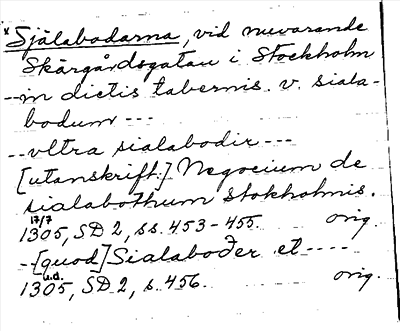 x Själabodarna, vid nuvarande
Skärgårdsgatan i Stockholm
--in dictis tabernis. v. siala-
bodum ---
--vltra sialabodir ---
[utanskrift:] Negocium de
sialabothum stokholmis.
17/7
1305, SD 2, ss. 453-455. orig.
--[quod] Sialaboðer et ----
u.d.
1305, SD 2, s. 456. orig.